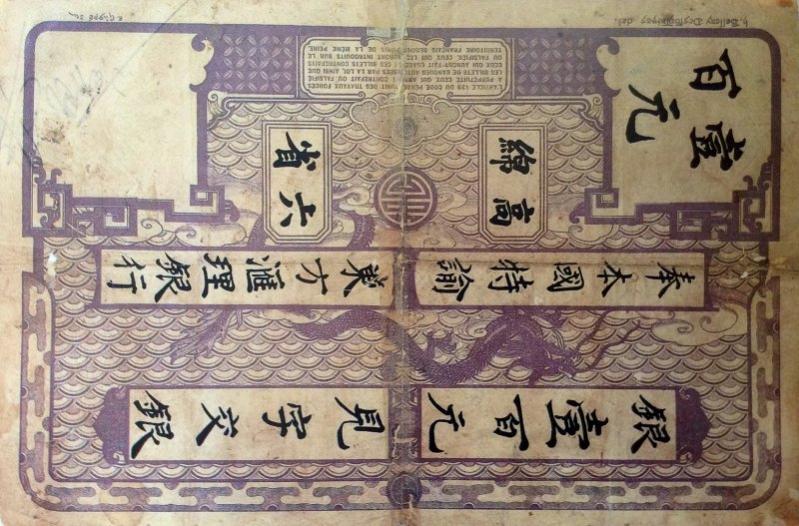 壹百元
高綿
六省
奉本國特諭
東方匯理銀行
銀壹百元
見字交銀
L'ARTICLE 139 DU CODE PÉNAL PUNIT DES TRAVAUX FORCÉS
À PERPÉTUITÉ CEUX QUI AURONT CONTREFAIT OU FALSIFIÉ
LES BILLETS DE BANQUES AUTORISÉES PAR LA LOI, AINSI QUE
CEUX QUI AURONT FAIT USAGE DE CES BILLETS CONTREFAITS
OU FALSIFIÉS. CEUX QUI LES AURONT INTRODUITS SUR LE
TERRITOIRE FRANÇAIS SERONT PUNIS DE LA MÊME PEINE.
Bellery Desfontaines del.